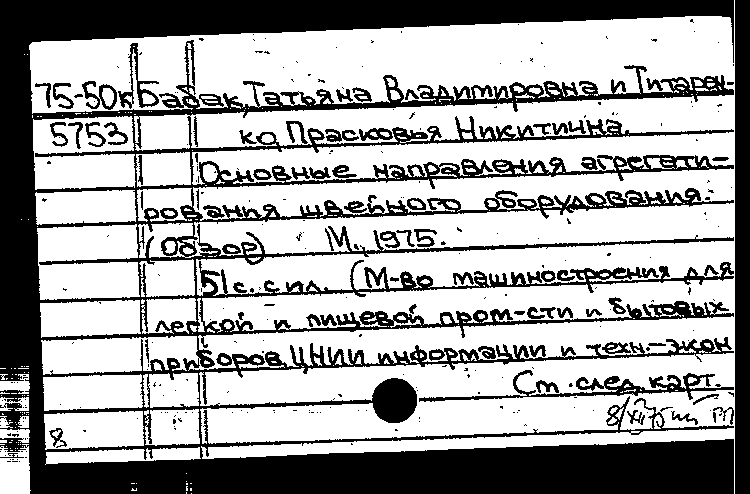 75-50к Бабак, Татьяна Владимировна и Титарен-
5753 ко, Прасковья Никитична.
Основные направления агрегати-
рования швейного оборудования.
(Обзор) М., 1975.
51 с. с ил. (М-во машиностроения для
легкой и пищевой пром-сти и бытовых
приборов. ЦНИИ информации и техн.-экон
См. след. карт.
8/XII 75
8